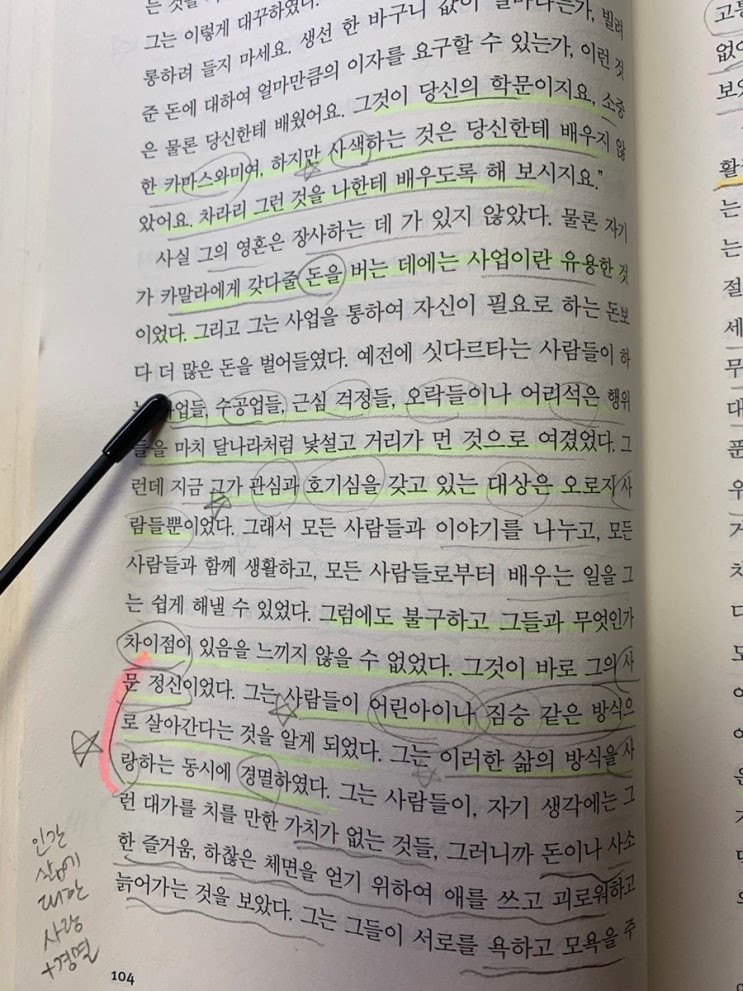 는 것을
그는 이렇게 대꾸하였다.
롱하려 들지 마세요. 생선 한 바구니 값이 얼마나는가, 빌려
준 돈에 대하여 얼마만큼의 이자를 요구할 수 있는가, 이런 것
은 물론 당신한테 배웠어요. 그것이 당신의 학문이지요, 소중
한 카마스와미여, 하지만 사색하는 것은 당신한테 배우지 않
았어요. 차라리 그런 것을 나한테 배우도록 해 보시지요.”
사실 그의 영혼은 장사하는 데 가 있지 않았다. 물론 자기
가 카말라에게 갖다줄 돈을 버는 데에는 사업이란 유용한 것
이었다. 그리고 그는 사업을 통하여 자신이 필요로 하는 돈보
다 더 많은 돈을 벌어들였다. 예전에 싯다르타는 사람들이 하
업들, 수공업들, 근심 걱정들, 오락들이나 어리석은 행위
들을 마치 달나라처럼 낯설고 거리가 먼 것으로 여겼었다. 그
런데 지금 그가 관심과 호기심을 갖고 있는 대상은 오로지 사
람들뿐이었다. 그래서 모든 사람들과 이야기를 나누고, 모든
사람들과 함께 생활하고, 모든 사람들로부터 배우는 일을 그
는 쉽게 해낼 수 있었다. 그럼에도 불구하고 그들과 무엇인가
차이점이 있음을 느끼지 않을 수 없었다. 그것이 바로 그의 사
문 정신이었다. 그는 사람들이 어린아이나 짐승 같은 방식으
로 살아간다는 것을 알게 되었다. 그는 이러한 삶의 방식을 사
랑하는 동시에 경멸하였다. 그는 사람들이, 자기 생각에는 그
런 대가를 치를 만한 가치가 없는 것들, 그러니까 돈이나 사소
한 즐거움, 하찮은 체면을 얻기 위하여 애를 쓰고 괴로워하고
늙어가는 것을 보았다. 그는 그들이 서로를 욕하고 모욕을 주
인간
삶에
대한
사랑
+경멸
104
고통
없어
보았
활
는
는
절
세
무
대
푼
우